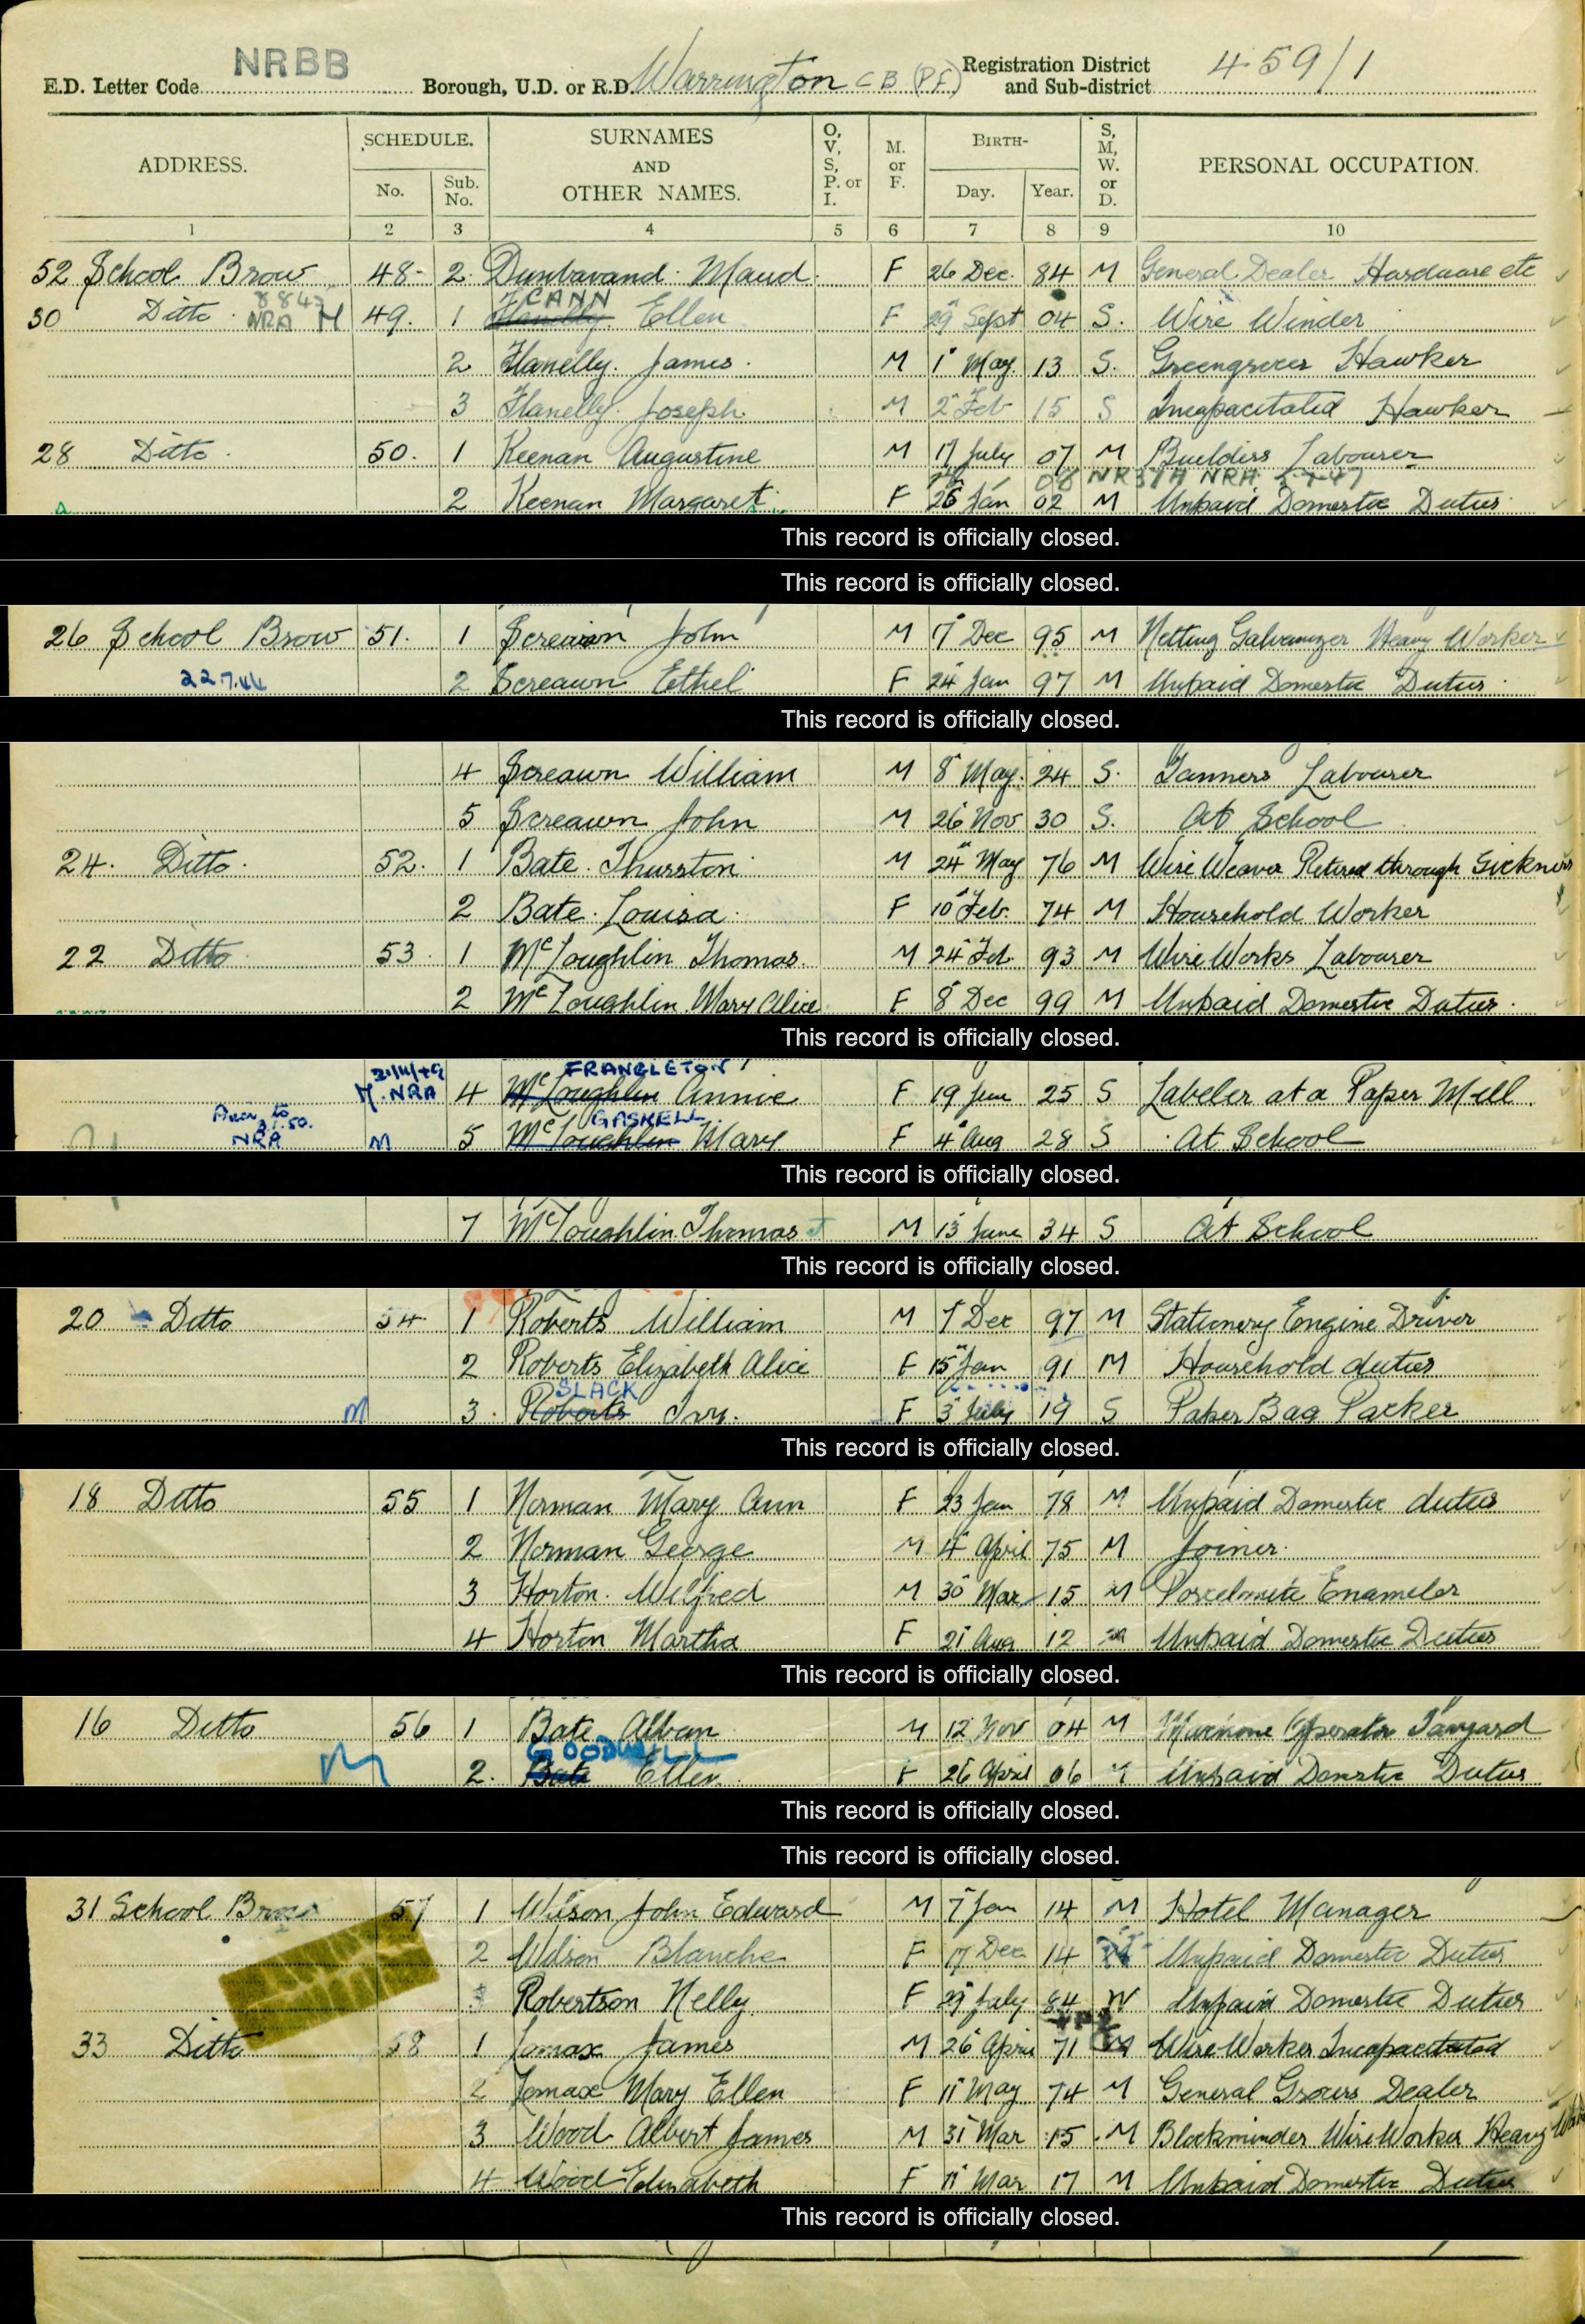 NRBB
E.D. Letter Code Borough, U.D. or R.D. Warrington C B (P.F.) Registration District and Sub-district 459/1
ADDRESS. SCHEDULE. SURNAMES AND OTHER NAMES. O, V, S, P. or I. M. or F. BIRTH- S, M, W. or D. PERSONAL OCCUPATION.
No. Sub. No. Day. Year.
1 2 3 4 5 6 7 8 9 10
52 School Brow 48 2 Dunbavand Maud F 26 Dec 84 M General Dealer Hardware etc
CANN
30 Ditto NRA M 49. 1 Flanelly Ellen F 29 Sept 04 S. Wire Winder
2 Flanelly James M 1 May 13 S. Greengrocer Hawker
3 Flanelly Joseph M 2 Feb 15 S Incapacitated Hawker
28 Ditto 50. 1 Keenan Augustine M 17 July 07 M Builders Labourer
2 Keenan Margaret F 26 Jan 02 M Unpaid Domestic Duties
This record is officially closed.
This record is officially closed.
26 School Brow 51. 1 Screawn John M 17 Dec 95 M Netting Galvanizer Heavy Worker
22.7.44 2 Screawn Ethel F 24 Jan 97 M Unpaid Domestic Duties
This record is officially closed.
4 Screawn William M 8 May 24 S. Tanners Labourer
5 Screawn John M 26 Nov 30 S. At School
24. Ditto 52. 1 Bate Thurston M 24 May 76 M Wire Weaver Retired through Sickness
2 Bate Louisa F 10 Feb. 74 M Household Worker
22 Ditto 53 1 McLoughlin Thomas M 24 Feb 93 M Wire Works Labourer
2 McLoughlin Mary Alice F 8 Dec 99 M Unpaid Domestic Duties
This record is officially closed.
FRANGLETON
M. NRA 4 McLoughlin Annie F 19 June 25 S Labeler at a Paper Mill
GASKELL
NRA M 5 McLoughlin Mary F 4 Aug 28 S At School
This record is officially closed.
7 McLoughlin Thomas M 13 June 34 S At School
This record is officially closed.
20 Ditto 54 1 Roberts William M 7 Dec 97 M Stationery Engine Driver
2 Roberts Elizabeth Alice F 15 Jan 91 M Household duties
SLACK
M 3 Roberts Ivy. F 3 July 19 S Paper Bag Packer
This record is officially closed.
18 Ditto 55 1 Norman Mary Ann F 23 Jan 78 M Unpaid Domestic duties
2 Norman George M 4 April 75 M Joiner
3 Horton Wilfred M 30 Mar 15 M Porcelanite Enameler
4 Horton Martha F 21 Aug 12 M Unpaid Domestic Duties
This record is officially closed.
16 Ditto 56 1 Bate Alban M 12 Nov 04 M Operator Tanyard
GOODWILL
M 2. Bate Ellen F 26 April 06 M Unpaid Domestic Duties
This record is officially closed.
This record is officially closed.
31 School Brow 57 1 Wilson John Edward M 7 Jan 14 M Hotel Manager
2 Wilson Blanche F 17 Dec 14 M Unpaid Domestic Duties
3 Robertson Nelly F 29 July 84 W Unpaid Domestic Duties
33 Ditto 58 1 Lomax James M 26 April 71 M Wire Worker Incapacitated
2 Lomax Mary Ellen F 11 May 74 M General Grocers Dealer
3 Wood Albert James M 31 Mar 15 M Blockminder Wire Worker Heavy
4 Wood Elizabeth F 11 Mar 17 M Unpaid Domestic Duties
This record is officially closed.